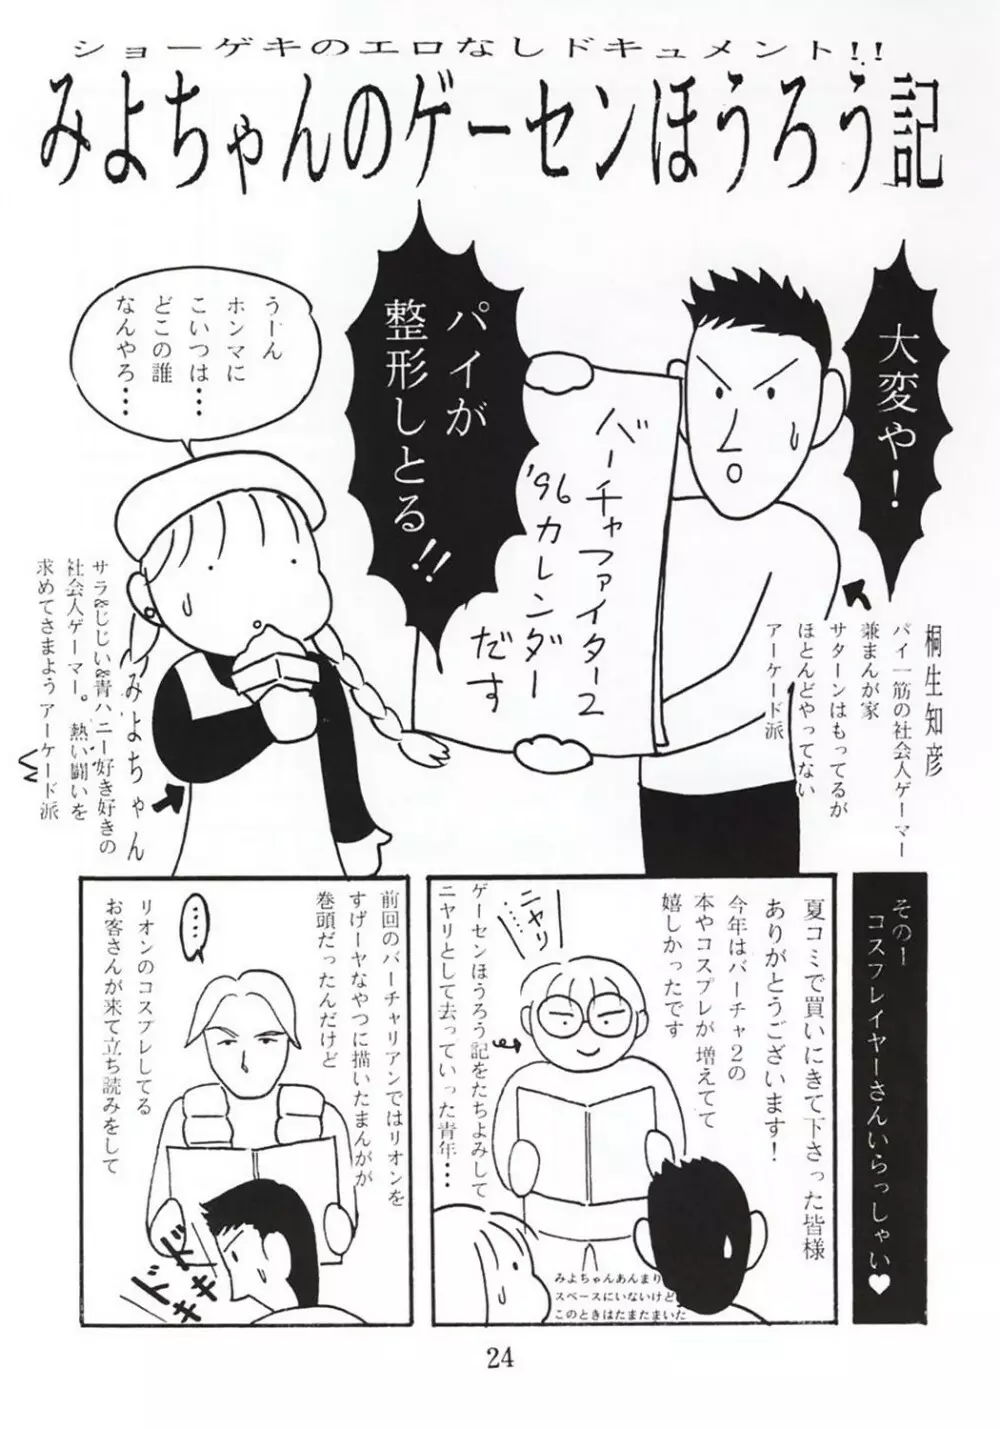 ショーゲキのエロなしドキュメント!!
みよちゃんのゲーセンほうろう記
大変や!
パイが
整形しとる!!
バーチャファイター2
'96カレンダー
だす
うーん
ホンマに
こいつは…
どこの誰
なんやろ…
桐生知彦
パイ一筋の社会人ゲーマー
兼まんが家
サターンはもってるが
ほとんどやってない
アーケード派
みよちゃん
サラ&じじい&青ハニー好き好きの
社会人ゲーマー。熱い闘いを
求めてさまよう アーケード派
その1
コスプレイヤーさんいらっしゃい♥
夏コミで買いにきて下さった皆様
ありがとうございます!
今年はバーチャ2の
本やコスプレが 増えてて
嬉しかったです
ニヤリ
……
ゲーセンほうろう記をたちよみして
ニヤリとして去っていった青年…
みよちゃんあんまり
スペースにいないけど
このときはたまたまいた
前回のバーチャリアンではリオンを
すげーヤなやつに描いたまんがが
巻頭だったんだけど
……
リオンのコスプレしてる
お客さんが来て立ち読みをして
ドキ
ドキ
24